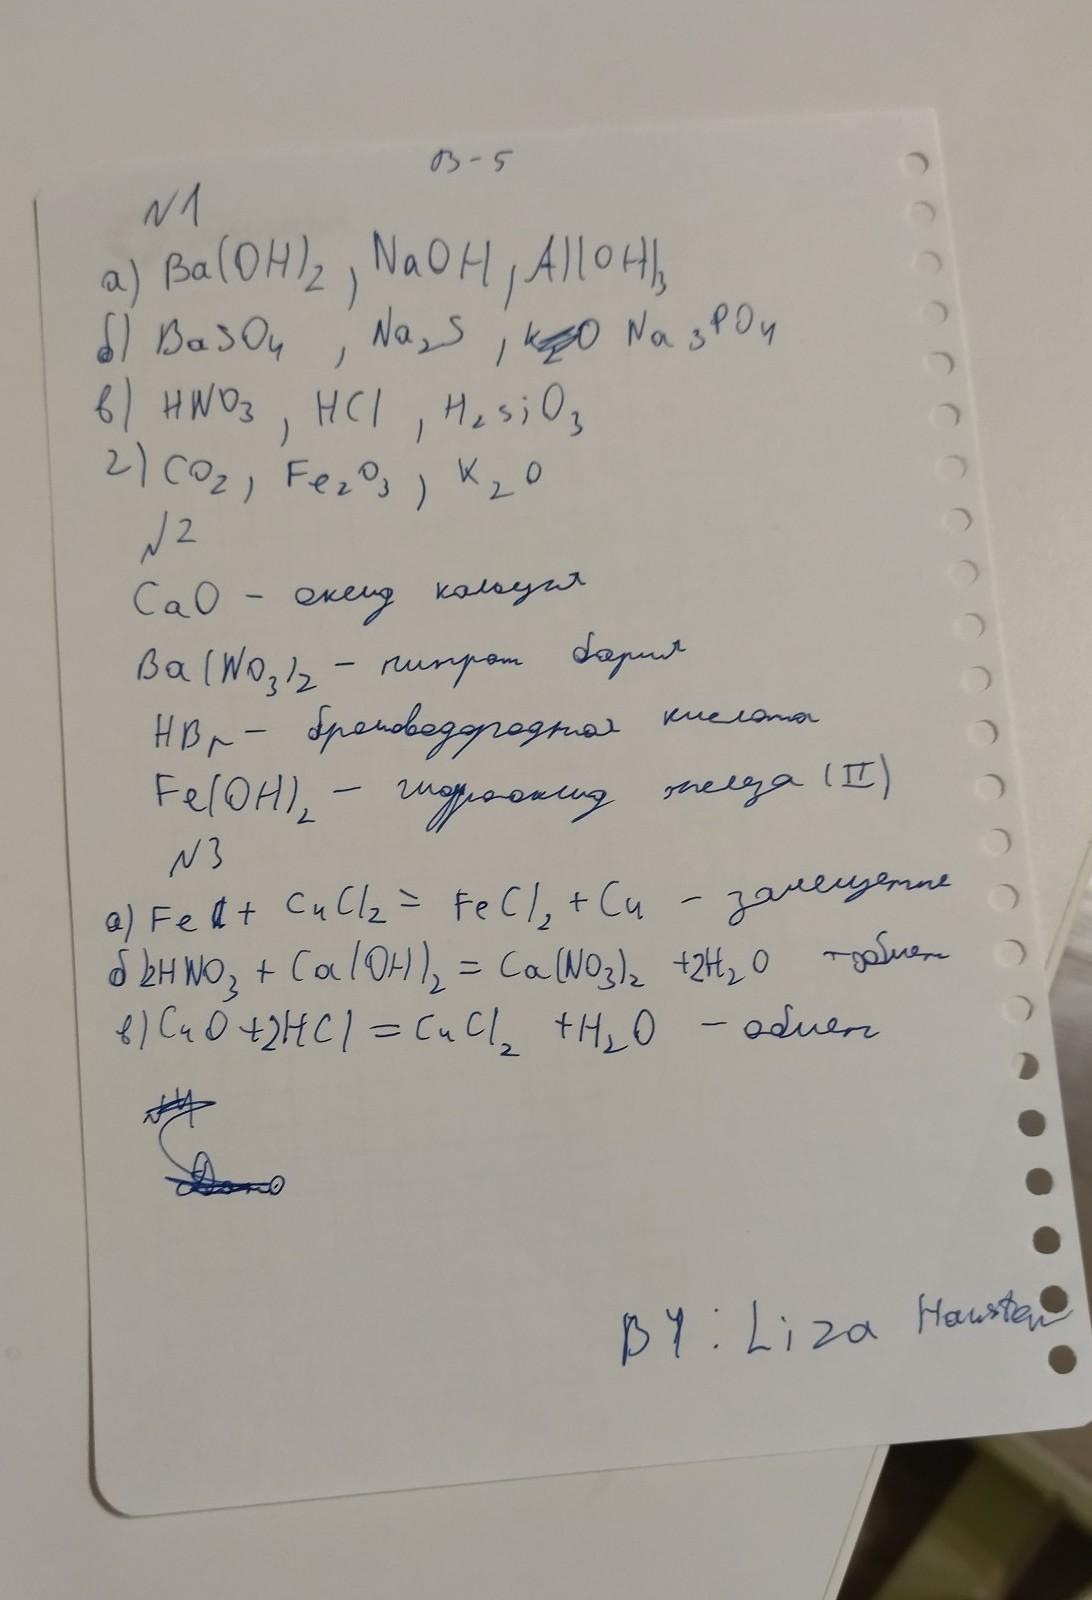 В-5
N1
а) Ba(OH)2, NaOH, Al(OH)3
б) BaSO4, Na2S, Na3PO4
в) HNO3, HCl, H2SiO3
г) CO2, Fe2O3, K2O
N2
CaO - оксид кальция
Ba(NO3)2 - нитрат бария
HBr - бромоводородная кислота
Fe(OH)2 - гидрооксид железа (II)
N3
а) Fe + CuCl2 = FeCl2 + Cu - замещение
б) 2HNO3 + Ca(OH)2 = Ca(NO3)2 + 2H2O - обмен
в) CuO + 2HCl = CuCl2 + H2O - обмен
N4
Дано
BY: Liza